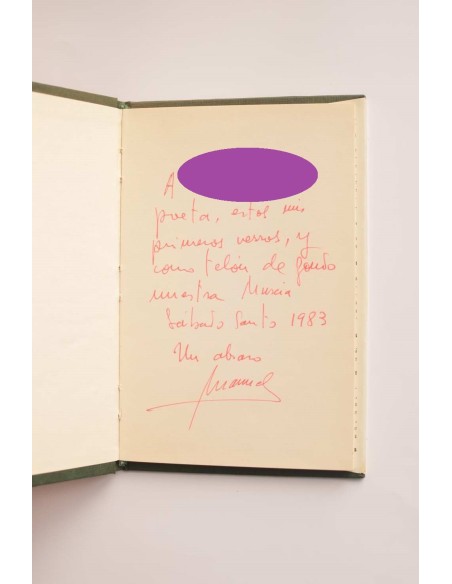 A
poeta, estos mis
primeros versos, y
como telón de fondo
nuestra Murcia
Sábado Santo 1983
Un abrazo
Manuel